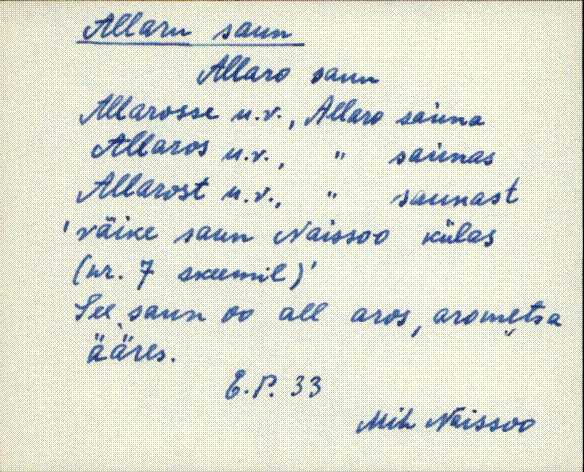 Allaru saun
Allaro saun
Allarosse u.v., Allaro sauna
Allaros u.v., " saunas
Allarost u.v., " saunast
'väike saun Naissoo külas
(nr. 7 skeemil)'
See saun oo all aros, arometsa
ääres.
E.P. 33
Mih Naissoo